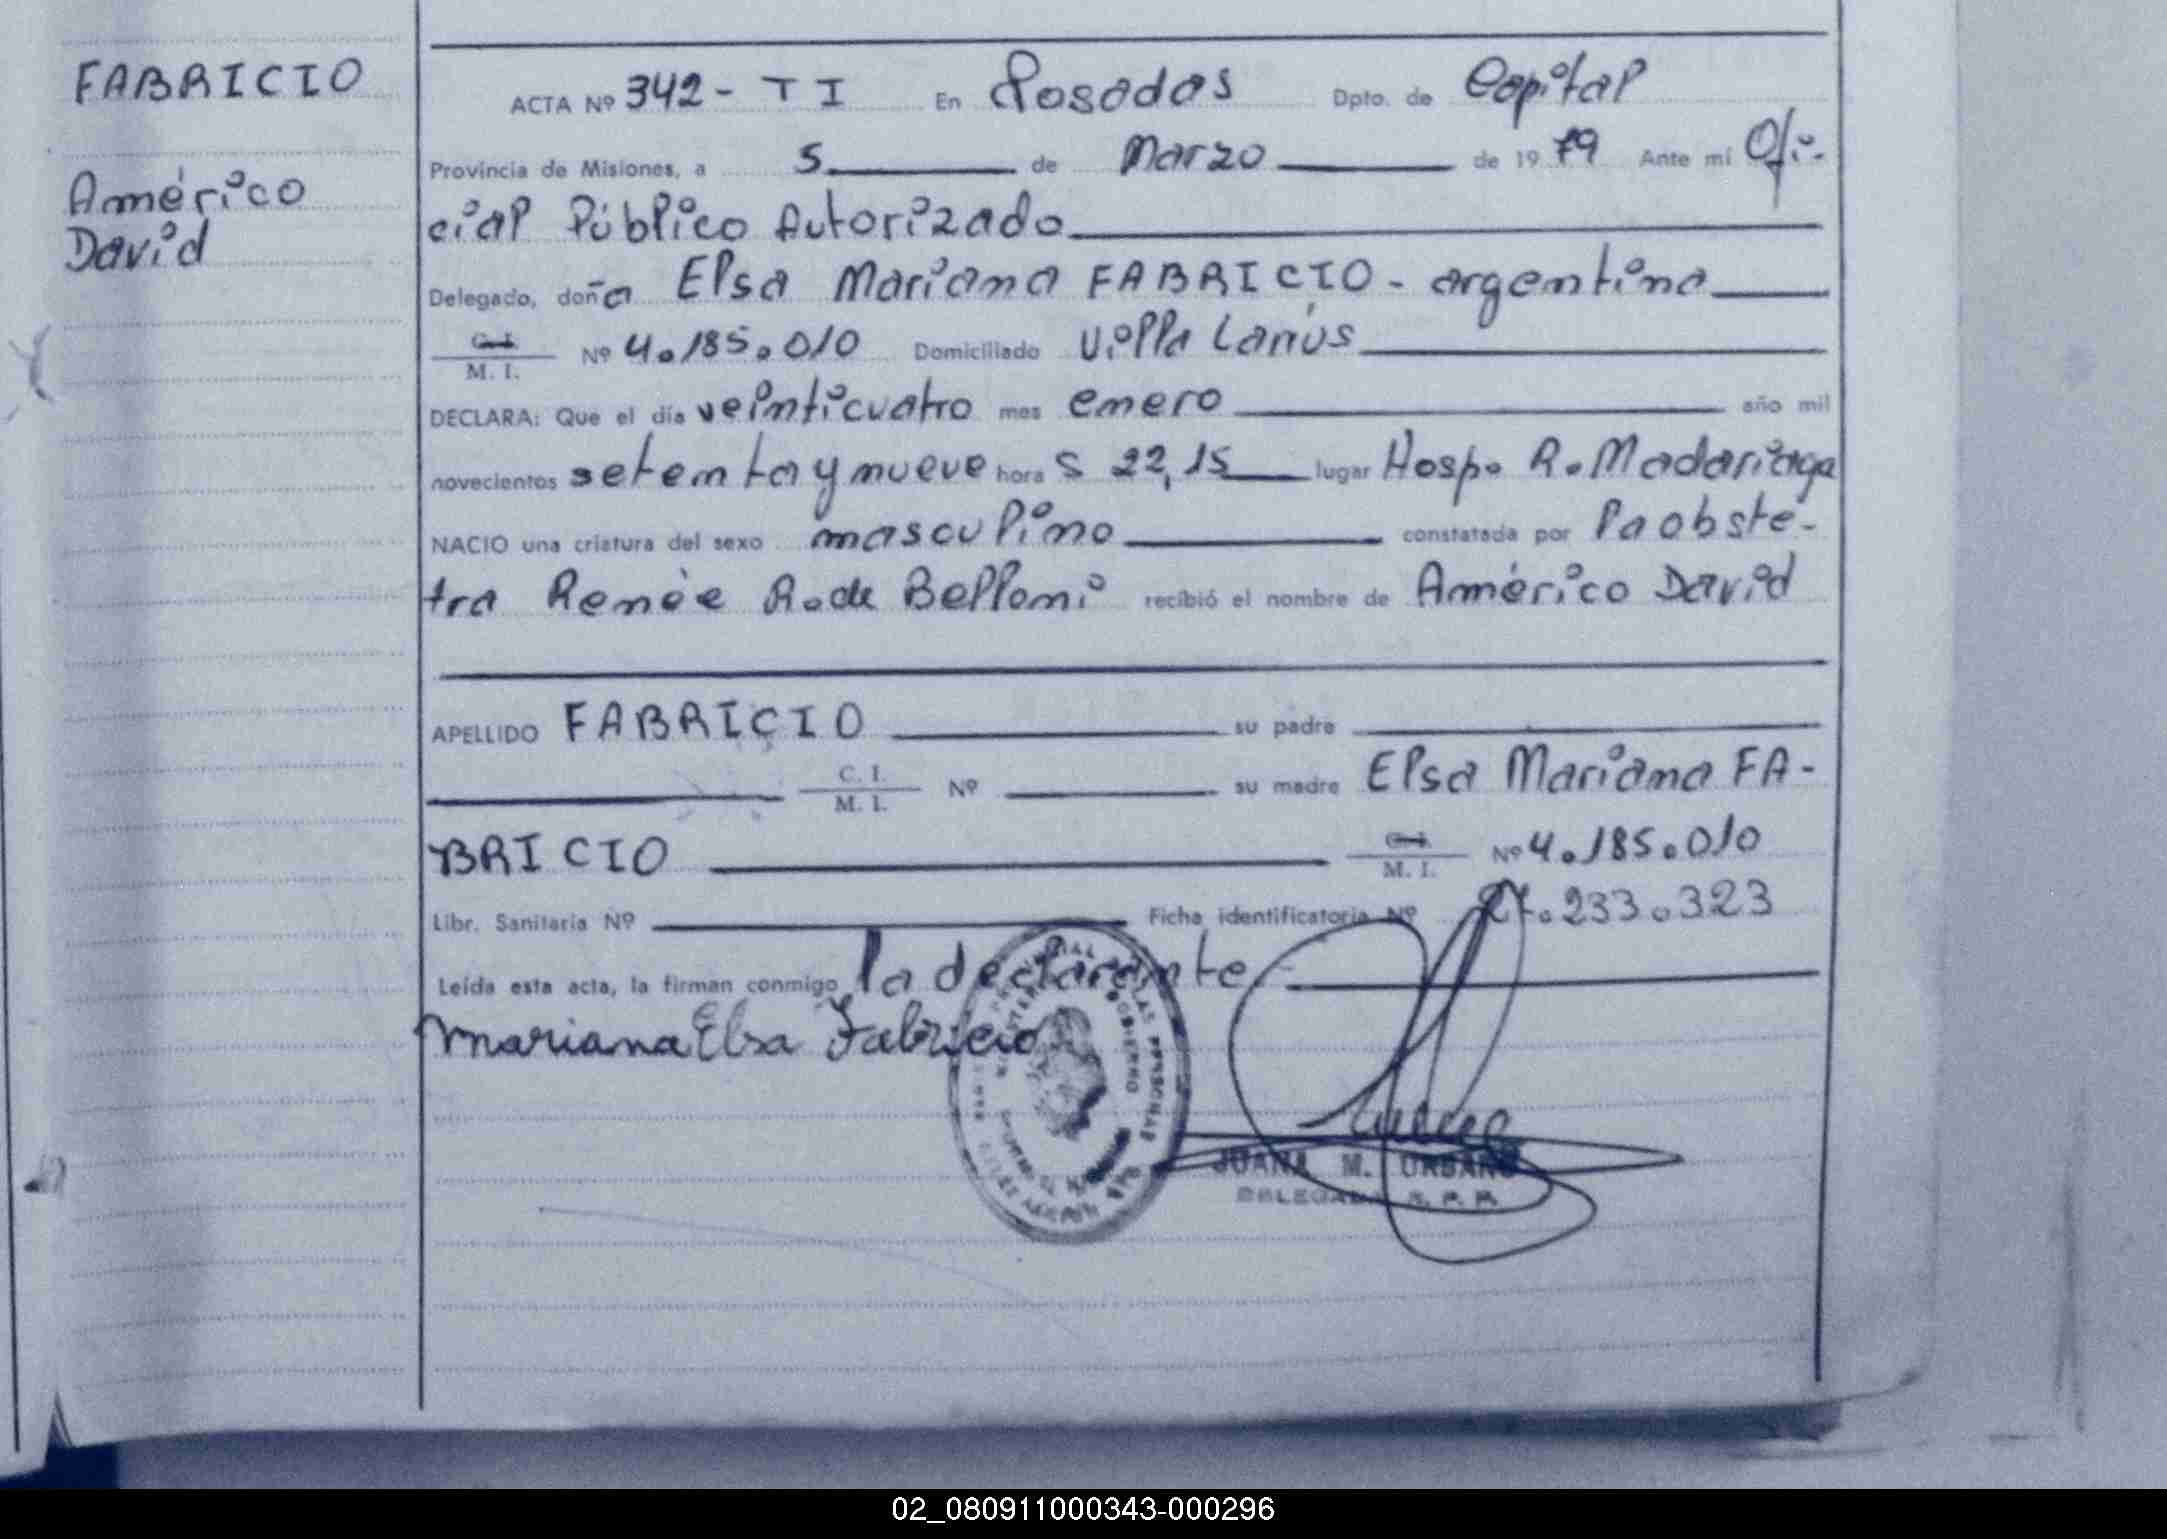 FABRICIO
Américo
David
ACTA Nº 342 - TI En Posadas Dpto. de Capital
Provincia de Misiones, a 5 de Marzo de 1979 Ante mí Ofi-
cial Público Autorizado
Delegado, doña Elsa Mariana FABRICIO - argentina
C. I. / M. I. Nº 4.185.010 Domiciliado Villa Lanús
DECLARA: Que el día veinticuatro mes enero año mil
novecientos setenta y nueve hora s 22,15 lugar Hosp. R. Madariaga
NACIO una criatura del sexo masculino constatada por la obste-
tra Renée R. de Belloni recibió el nombre de Américo David
APELLIDO FABRICIO su padre
C. I. / M. I. Nº su madre Elsa Mariana FA-
BRICIO C. I. / M. I. Nº 4.185.010
Libr. Sanitaria Nº Ficha identificatoria Nº 27.233.323
Leída esta acta, la firman conmigo la declarante
Mariana Elsa Fabricio
JUANA M. URBANO
DELEGADA R. P. P.
02_080911000343-000296